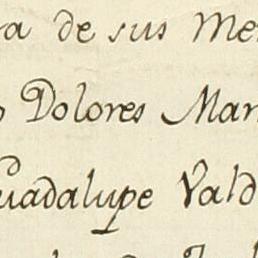 a de sus Me
Dolores Mar
Guadalupe Vald